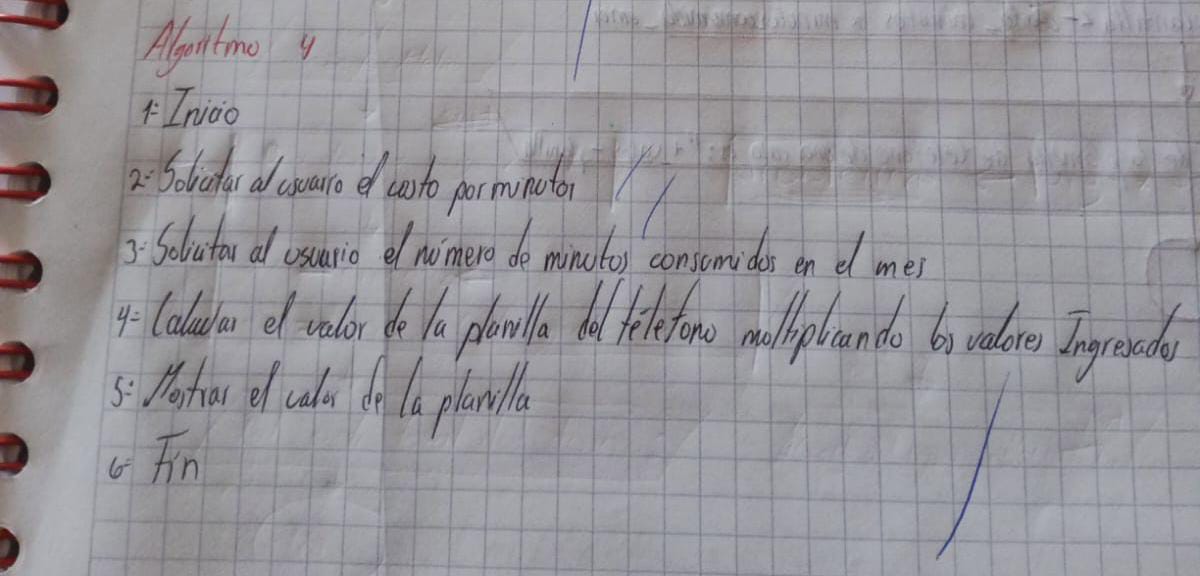 Algoritmo 4
1- Inicio
2- Solicitar al usuario el costo por minutos
3- Solicitar al usuario el número de minutos consumidos en el mes
4- Calcular el valor de la planilla del teléfono multiplicando los valores Ingresados
5- Mostrar el valor de la planilla
6- Fin